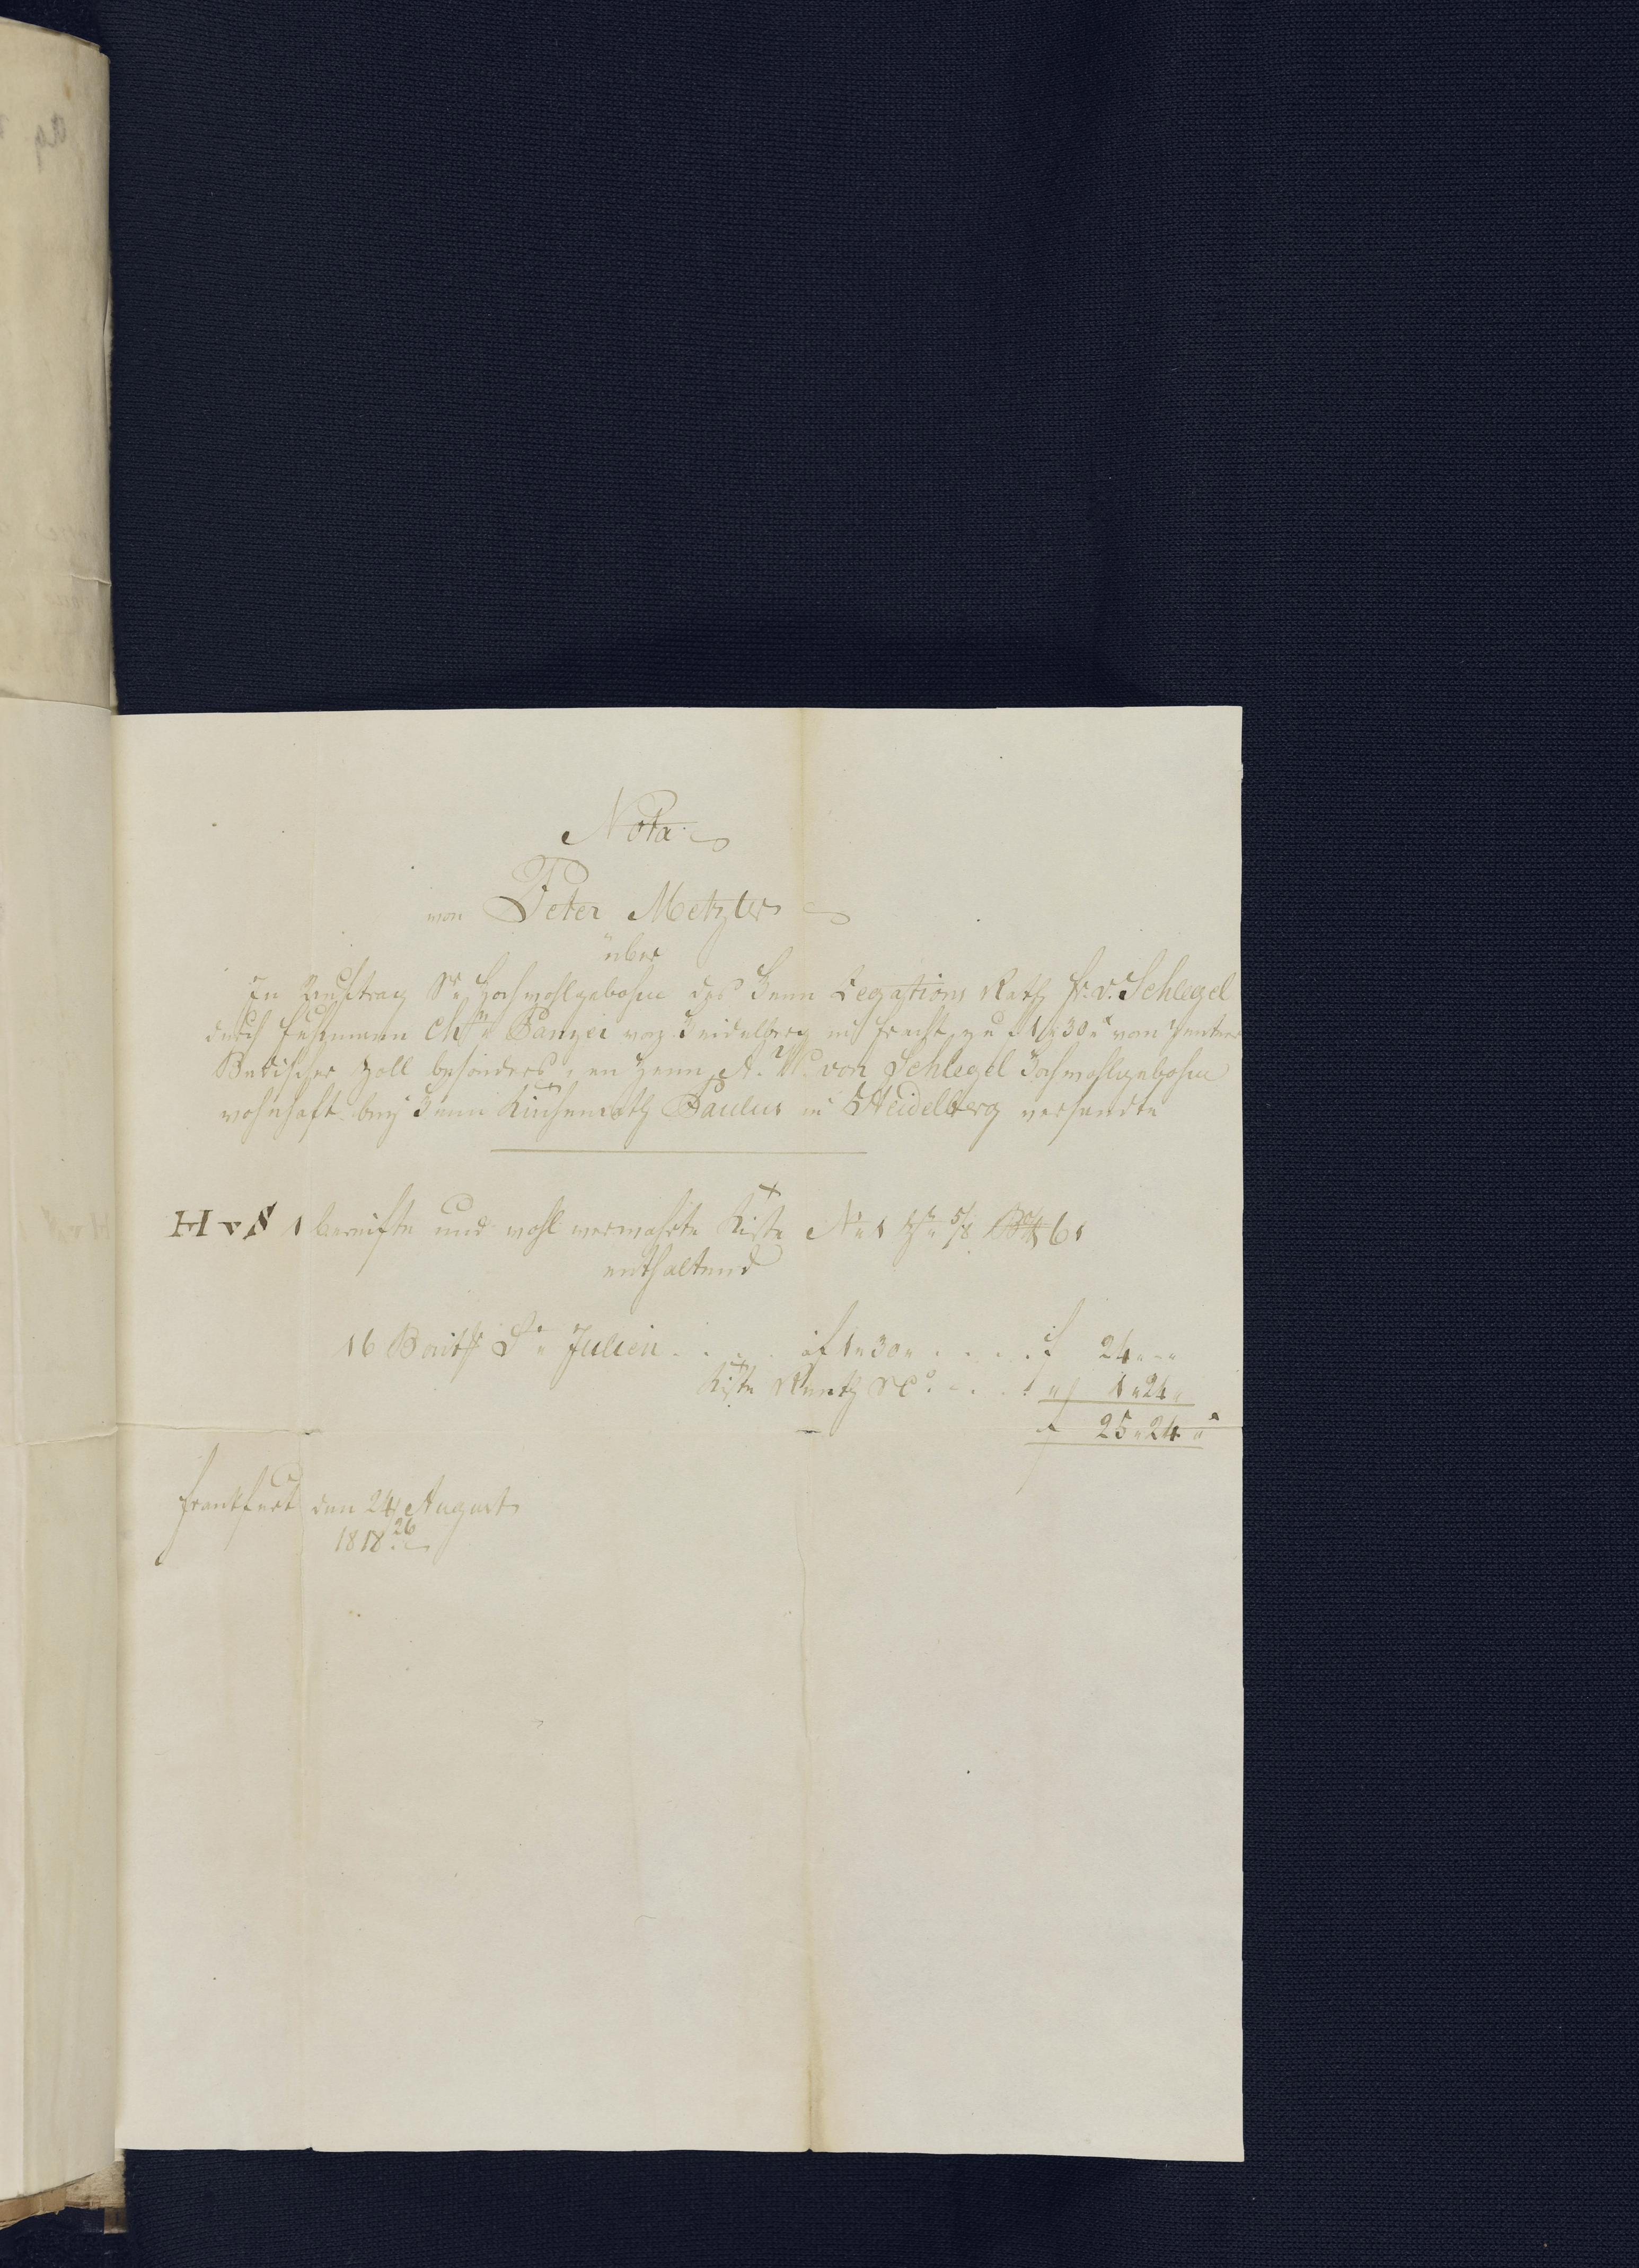 Nota.
von Peter Metzler
über
In Auftrag Sr Hochwohlgebohrn des Herrn Legations Rath Fr. v. Schlegel
durch Fuhrmann Panzer von Heidelberg in Fracht zu f 1 „ 30 „ x von Zentner
Badischer Zoll besonders, an Herrn A. W. von Schlegel Hochwohlgebohrn
wohnhaft bey Herrn Kirchenrath Paulus in Heidelberg versandte
H v S 1 bereifte und wohl verwahrte Kiste No 1 5/8 61
enthaltend
16 Bout St Julien . . . . à f 1 „ 30 „ . . . . f 24 „ - „
Kiste &c . . . . „ 1 „ 24 „
f 25 „ 24 „ x
Frankfurt den 24 August
26
1818.